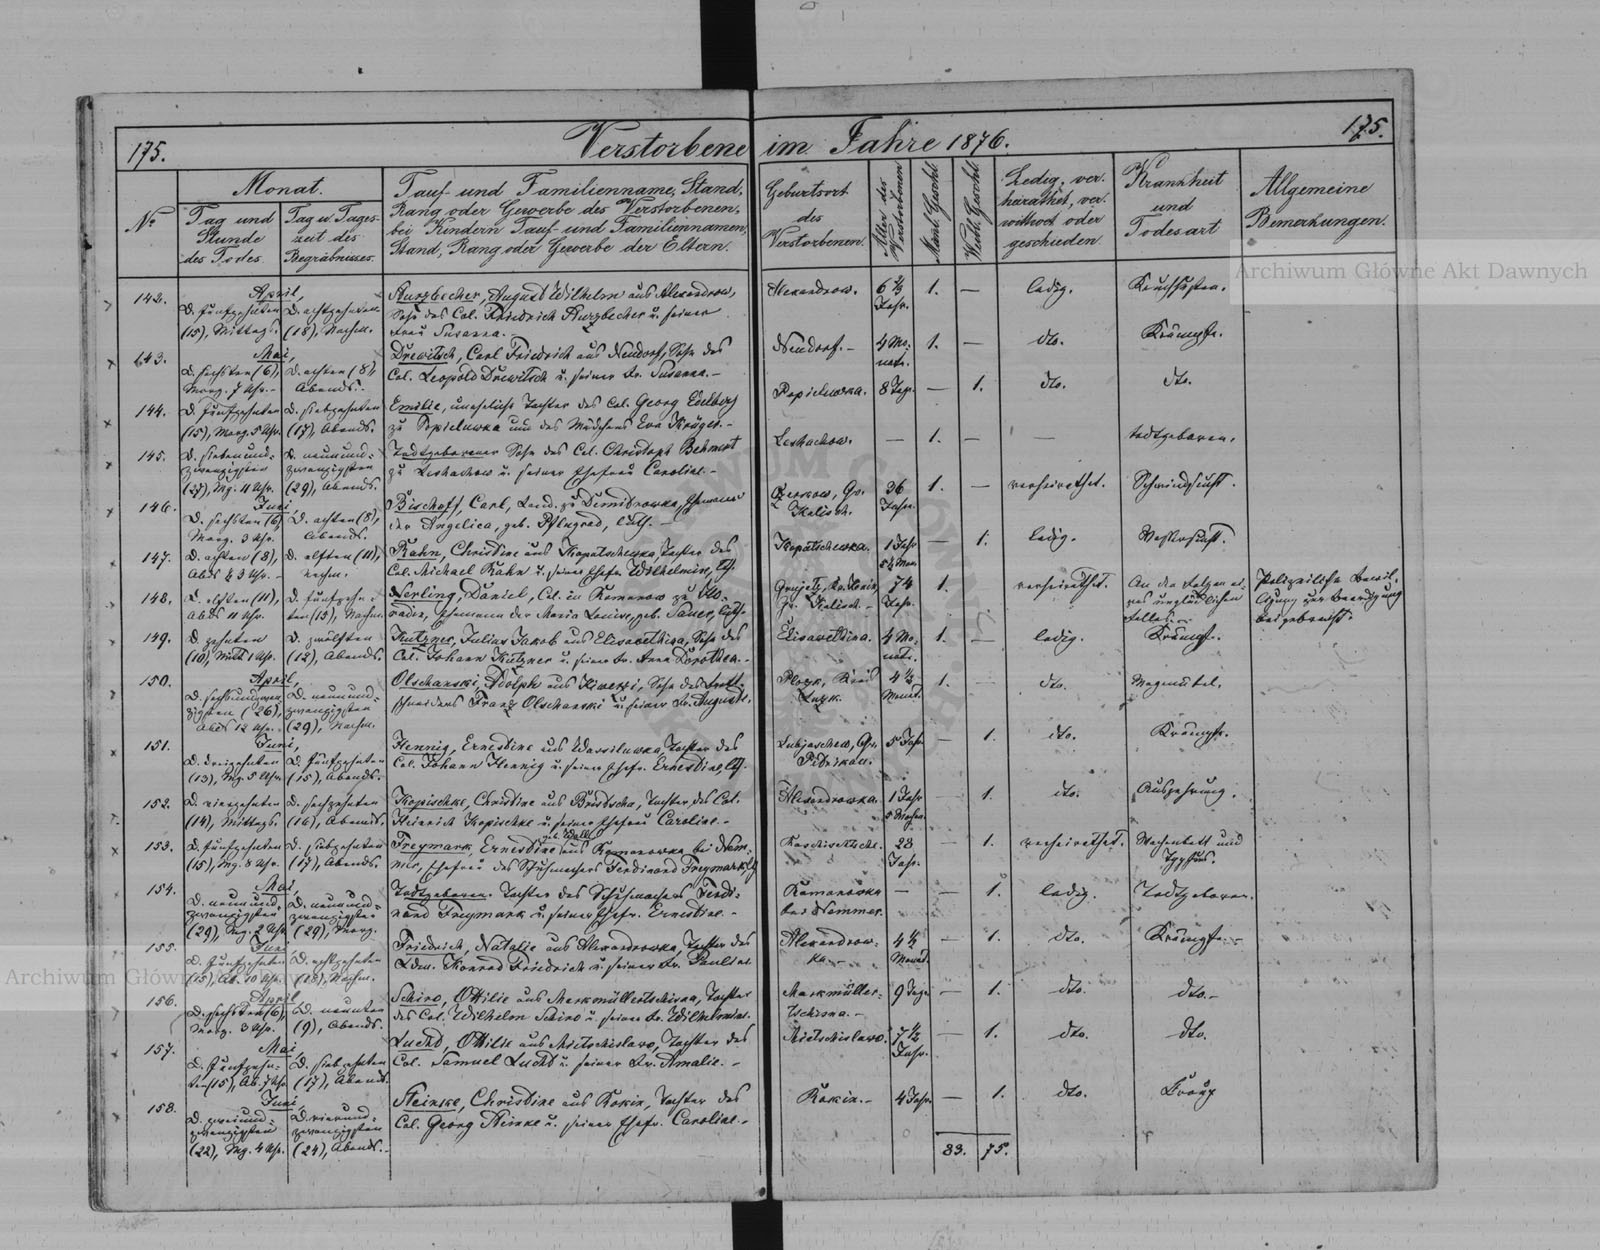 175.
Verstorbene im Jahre 1876.
175.
No
Monat.
Tag und Stunde des Todes.
Tag u. Tages-zeit des Begräbnisses.
Tauf- und Familienname, Stand,
Rang oder Gewerbe des Verstorbenen,
bei Kindern Tauf- und Familiennamen,
Stand, Rang oder Gewerbe der Eltern.
Geburtsort
des
Verstorbenen.
Alter des Verstorbenen
Männl. Geschl.
Weibl. Geschl.
Ledig, ver-
heirathet, ver-
wittwet oder
geschieden.
Krankheit
und
Todesart
Allgemeine
Bemerkungen.
Archiwum Główne Akt Dawnych
142.
April,
D. fünfzehnten
(15), Mittags.
D. achtzehnten
(18), Nachm.
Kurzbecher, August Wilhelm aus Alexandrow,
Sohn des Col. Friedrich Kurzbecher u. seiner
Frau Susanna.-
Alexandrow.
Jahr.
1.
—
ledig.
Keuchhusten.
143.
Mai,
D. sechsten (6),
Morg. 7 Uhr.-
D. achten (8),
Abends.-
Drewitsch, Carl Friedrich aus Neudorf, Sohn des
Col. Leopold Drewitsch u. seiner Fr. Susanna.-
Neudorf.-
4 Mo-
nate.
1.
—
dto.
Krämpfe.
144.
D. fünfzehnten
(15), Morg. 5 Uhr.
D. siebzehnten
(17), Abends.
Emilie, uneheliche Tochter des Col. Georg Edelberg
zu Popieluwka und des Mädchens Eva Krüger.-
Popieluwka.
8 Tage.
—
1.
dto.
dto.
145.
D. siebenund-
zwanzigsten
(27), Mg. 11 Uhr.
D. neunund-
zwanzigsten
(29), Abends.
Todtgeborener Sohn des Col. Christoph Behmert
zu Leshachow u. seiner Ehefrau Caroline.-
Leshachow.
—
1.
—
—
todtgeboren.
146.
Juni,
D. sechsten (6),
Morg. 3 Uhr.
D. achten (8),
Abends.
Bischoff, Carl, Land. zu Demidrowka, Ehemann
der Angelica, geb. Pflugrad, luth.-
Gr.
Kalisch.
36
Jahr.
1.
—
verheirathet.
Schwindsucht.
147.
D. achten (8),
Abds 3 Uhr.-
D. elften (11),
Nachm.
Rahn, Christine aus Kopatschewka, Tochter des
Col. Michael Rahn u. seiner Ehefr. Wilhelmine,
Kopatschewka.
1 Jahr
—
1.
ledig.
Wassersucht.
148.
D. elften (11),
Abds 11 Uhr.
D. fünfzehn-
ten (15), Nachm.
Nerling, Daniel, Col. in Romanow zu
Ehemann der Maria Louise, geb.
Gr. Kalisch.-
74
Jahr.
1.
verheirathet.
An den Folgen ei-
nes unglücklichen
Falles.
Polizeiliche Bewil-
ligung zur Beerdigung
beigebracht.
149.
D. zehnten
(10), Mitt 1 Uhr.
D. zwölften
(12), Abends.
Kutzner, Julius Jakob aus Elisawethina, Sohn des
Col. Johann Kutzner u. seiner Fr. Anna Dorothea.-
Elisawethina.
4 Mo-
nate.
1.
—
ledig.
Krämpfe.
150.
April,
D. sechsundzwan-
zigsten (26),
Abds 12 Uhr.
D. neunund-
zwanzigsten
(29), Nachm.
Olschanski, Adolph aus Kiwerzi, Sohn des Brett-
schneiders Franz Olschanski u. seiner Fr. August.
Luzk.
Monat.
1.
dto.
Magenübel.
151.
Juni,
D. dreizehnten
(13), Mg. 5 Uhr.
D. fünfzehnten
(15), Abends.
Hennig, Ernestine aus Wassiluwka, Tochter des
Col. Johann Hennig u. seiner Ehefr. Ernestine,
Lubjaschew, Gr.
Petrikau.
5 Jahr.
—
1.
dto.
Krämpfe.
152.
D. vierzehnten
(14), Mittags.
D. sechzehnten
(16), Abends.
Kopischke, Christine aus Bristscha, Tochter des Col.
Heinrich Kopischke u. seiner Ehefrau Caroline.-
Alexandrowka.
1 Jahr
—
1.
dto.
Auszehrung.
153.
D. fünfzehnten
(15), Mg. 8 Uhr.
D. siebzehnten
(17), Abends.
Freymark, Ernestine aus Romanowka bei Nem-
mer, Ehefrau des Schuhmachers Ferdinand Freymark,
23
Jahr.
—
1.
verheirathet.
Wochenbett und
Typhus.
154.
Mai,
D. neunund-
zwanzigsten
(29), Mg. 2 Uhr.
D. neunund-
zwanzigsten
(29), Morg.
Todtgeborene Tochter des Schuhmachers Ferdi-
nand Freymark u. seiner Ehefr. Ernestine.-
Romanowka
bei Nemmer.
—
—
1.
ledig.
Todtgeboren.
155.
Juni,
D. fünfzehnten
(15), Ab. 10 Uhr.
D. achtzehnten
(18), Nachm.
Friedrich, Natalie aus Alexandrowka, Tochter des
Ldm. Konrad Friedrich u. seiner Fr. Pauline
Alexandrow-
ka.-
4½
Monat.
—
1.
dto.
Krämpfe.-
Archiwum Główne Akt Dawnych
156.
April,
D. sechsten (6),
Morg. 3 Uhr.
D. neunten
(9), Abends.
Schiro, Ottilie aus Markmüllertschisna, Tochter
des Col. Wilhelm Schiro u. seiner Fr. Wilhelmine.
Markmüller-
tschisna.-
9 Tage
—
1.
dto.
dto.-
157.
Mai,
D. fünfzehn-
ten (15), Ab. 7 Uhr
D. siebzehnten
(17), Abends.
Lucht, Ottilie aus Mietschislawo, Tochter des
Col. Samuel Lucht u. seiner Fr. Amalie.-
Mietschislawo.
7½
Jahr.
—
1.
dto.
dto.
158.
Juni,
D. zweiund-
zwanzigsten
(22), Mg. 4 Uhr.
D. vierund-
zwanzigsten
(24), Abends.-
Steinke, Christine aus Rokin, Tochter des
Col. Georg Steinke u. seiner Ehefr. Caroline.-
Rokin.-
4 Jahr.
—
1.
dto.
Kroup
83. 75.